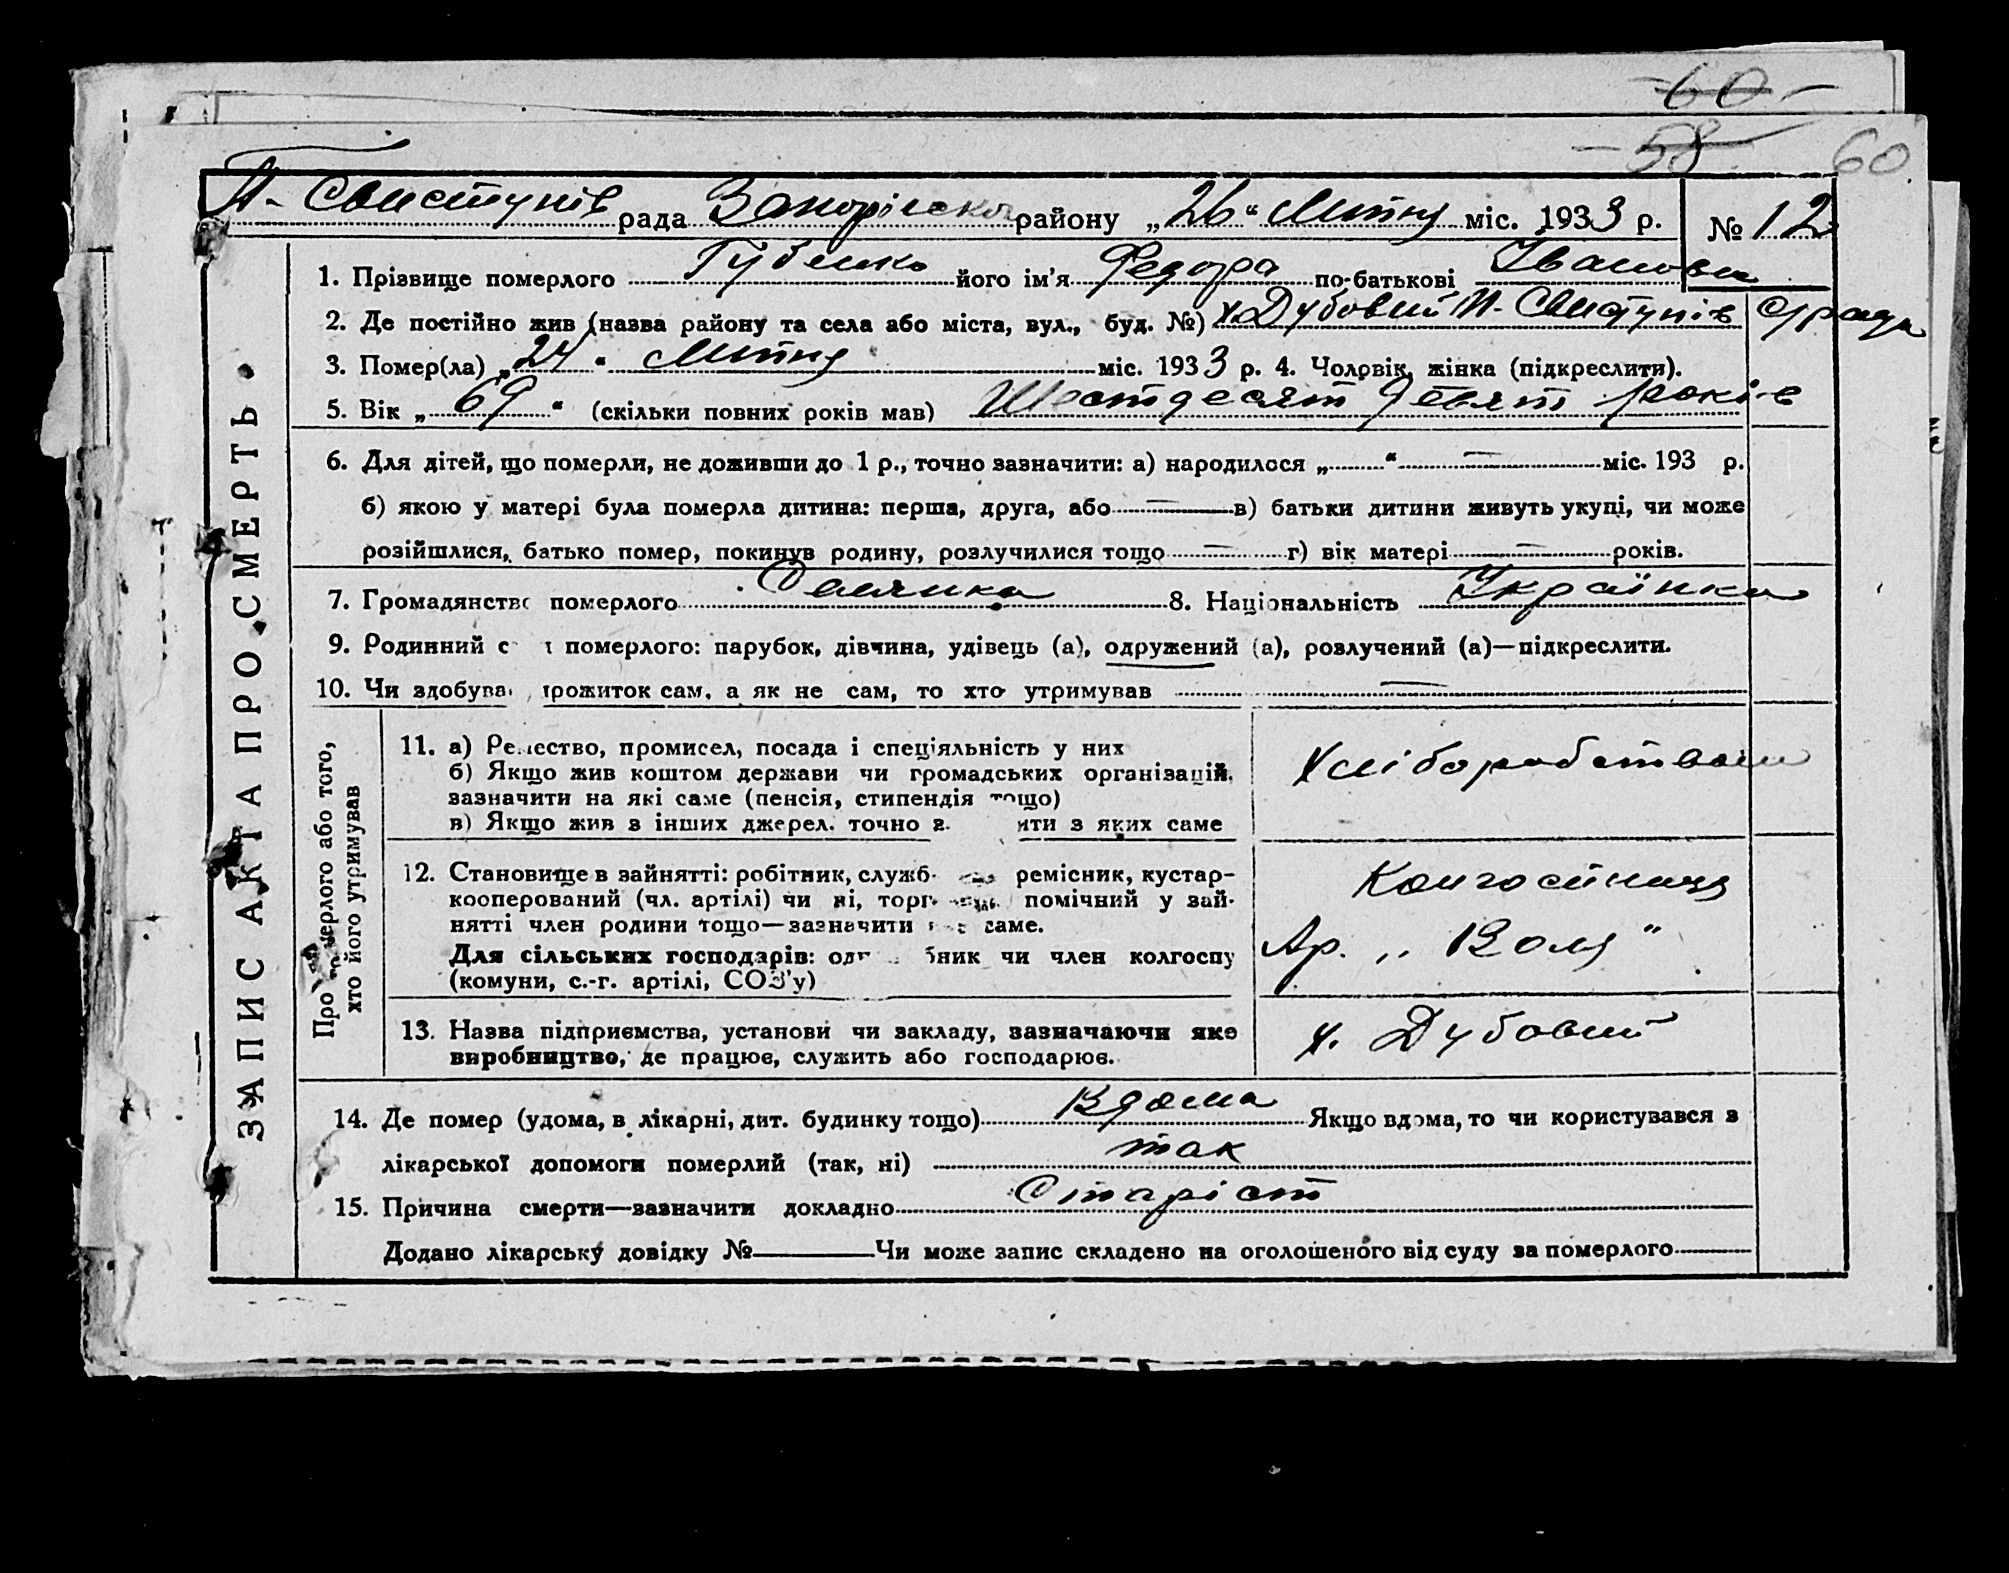 60
58 60
рада району „26“ міс. 1933 р. № 12
1. Прізвище померлого Губенко його ім'я Федора по-батькові Івановна
2. Де постійно жив (назва району та села або міста, вул., буд. №) х. Дубовий срада
3. Помер(ла) „24“ міс. 1933 р. 4. Чоловік, жінка (підкреслити).
5. Вік „69“ (скільки повних років мав) Шестдесят девят років
6. Для дітей, що померли, не доживши до 1 р., точно зазначити: а) народилося „ “ — міс. 193 р.
б) якою у матері була померла дитина: перша, друга, або — в) батьки дитини живуть укупі, чи може
розійшлися, батько помер, покинув родину, розлучилися тощо — г) вік матері — років.
7. Громадянство померлого Селянка 8. Національність Українка
9. Родинний с т померлого: парубок, дівчина, удівець (а), одружений (а), розлучений (а)—підкреслити.
10. Чи здобував прожиток сам, а як не сам, то хто утримував —
ЗАПИС АКТА ПРО СМЕРТЬ
Про померлого або того,
хто його утримував
11. а) Ремество, промисел, посада і спеціяльність у них
б) Якщо жив коштом держави чи громадських організацій,
зазначити на які саме (пенсія, стипендія тощо)
в) Якщо жив з інших джерел, точно з ити з яких саме
Хліборобством
12. Становище в зайнятті: робітник, служб ремісник, кустар-
кооперований (чл. артілі) чи ні, торг помічний у зай-
нятті член родини тощо—зазначити саме.
Для сільських господарів: од бник чи член колгоспу
(комуни, с.-г. артілі, СОЗ'у)
Колгоспниця
Ар. „Воля“
13. Назва підприємства, установи чи закладу, зазначаючи яке
виробництво, де працює, служить або господарює.
х. Дубовий
14. Де помер (удома, в лікарні, дит. будинку тощо) Вдома Якщо вдома, то чи користувався з
лікарської допомоги померлий (так, ні) так
15. Причина смерти—зазначити докладно Старіст
Додано лікарську довідку № Чи може запис складено на оголошеного від суду за померлого